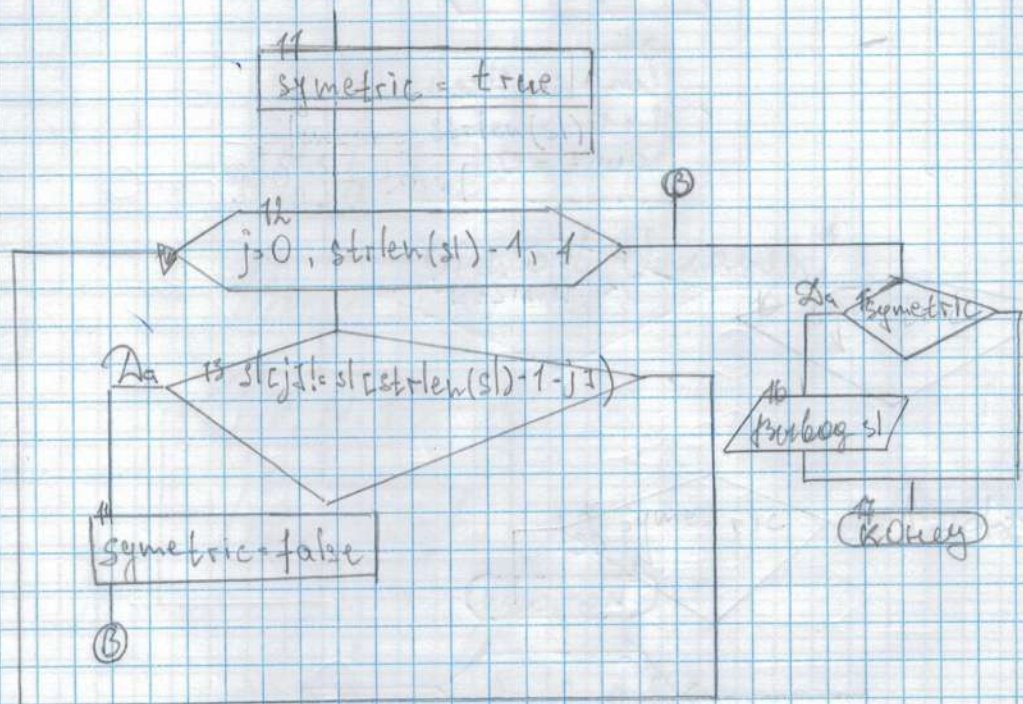 11
symetric = true
B
12
j=0, strlen(sl)-1, 1
Да
symetric
Да
13 sl[j]!=sl[strlen(sl)-1-j])
16
Вывод sl
17
Конец
symetric=false
B